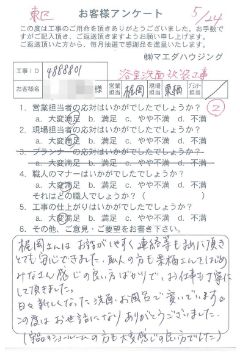 東区
お客様アンケート
5/24
この度は工事のご用命を頂きありがとうございました。お手数で
すがご記入頂き、ご返送頂きますようお願い申し上げます。
ご返送頂いた方から、毎月抽選で感謝品を進呈いたします。
㈱マエダハウジング
工事ID 4888801
浴室洗面改装工事
お客様名 様 営業担当 梶岡 現場担当 栗栖
②
1. 営業担当者の応対はいかがでしたでしょうか?
a. 大変満足 b. 満足 c. やや不満 d. 不満
2. 現場担当者の応対はいかがでしたでしょうか?
a. 大変満足 b. 満足 c. やや不満 d. 不満
3. プランナーの応対はいかがでしたでしょうか?
a. 大変満足 b. 満足 c. やや不満 d. 不満
4. 職人のマナーはいかがでしたでしょうか?
a. 大変満足 b. 満足 c. やや不満 d. 不満
それはどの職人でしょうか( )
5. 工事の仕上がりはいかがでしたでしょうか?
a. 大変満足 b. 満足 c. やや不満 d. 不満
6. その他、ご意見、ご要望をお聞かせください
梶岡さんはお話がしやすく連絡等もまめに頂き
とても安心できました。職人の方も栗栖さんをはじめ
みなさん感じの良い方ばかりで、お仕事も丁寧に
して頂きました。
日々新しくなった洗面・お風呂で喜いでいます。
この度はお世話になりありがとうございました。
の方も大変感じの良い方でした